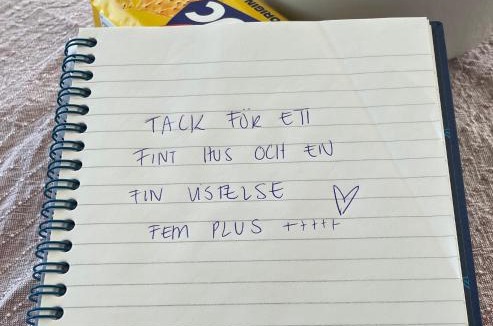 ORIGIN
TACK FÖR ETT
FINT HUS OCH EN
FIN VISTELSE
FEM PLUS +++++